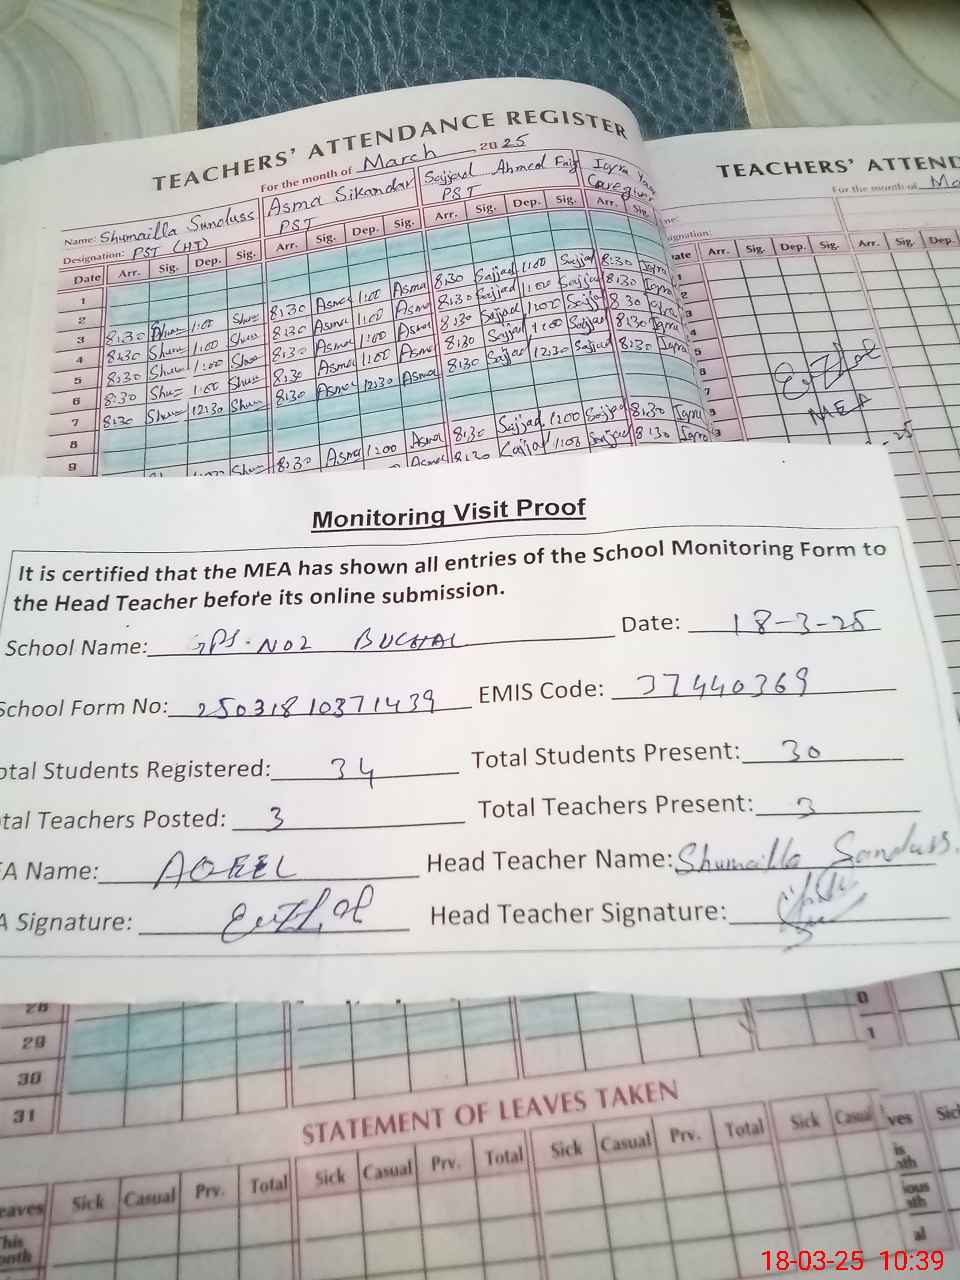 TEACHERS' ATTENDANCE REGISTER
For the month of March 2025
Name: Shumailla Sunduss Asma Sikandar Sajjad Ahmed Iqra
Designation: PST (HT) PST PST Caregiver
Date Arr. Sig. Dep. Sig. Arr. Sig. Dep. Sig. Arr. Sig. Dep. Sig. Arr. Sig.
1
2
3 8:30 Shum 1:00 Shum 8:30 Asma 1:00 Asma 8:30 Sajjad 1:00 Sajjad 8:30 Iqra
4 8:30 Shum 1:00 Shum 8:30 Asma 1:00 Asma 8:30 Sajjad 1:00 Sajjad 8:30 Iqra
5 8:30 Shum 1:00 Shum 8:30 Asma 1:00 Asma 8:30 Sajjad 1:00 Sajjad 8:30 Iqra
6 8:30 Shum 1:00 Shum 8:30 Asma 1:00 Asma 8:30 Sajjad 1:00 Sajjad 8:30 Iqra
7 8:30 Shum 12:30 Shum 8:30 Asma 12:30 Asma 8:30 Sajjad 12:30 Sajjad 8:30 Iqra
8
9
8:30 Asma 1:00 Asma 8:30 Sajjad 1:00 Sajjad 8:30 Iqra
TEACHERS' ATTEND
For the month of Ma
Arr. Sig. Dep. Sig. Arr. Sig. Dep.
MEA
Monitoring Visit Proof
It is certified that the MEA has shown all entries of the School Monitoring Form to
the Head Teacher before its online submission.
School Name: GPS. NO2 BUCHAL Date: 18-3-25
School Form No: 25031810371439 EMIS Code: 37440369
otal Students Registered: 34 Total Students Present: 30
tal Teachers Posted: 3 Total Teachers Present: 3
EA Name: AQEEL Head Teacher Name: Shumailla Sanduss.
A Signature: Head Teacher Signature:
28
29
30
31
STATEMENT OF LEAVES TAKEN
eaves Sick Casual Prv. Total Sick Casual Prv. Total Sick Casual Prv. Total Sick Casual
This
onth
18-03-25 10:39